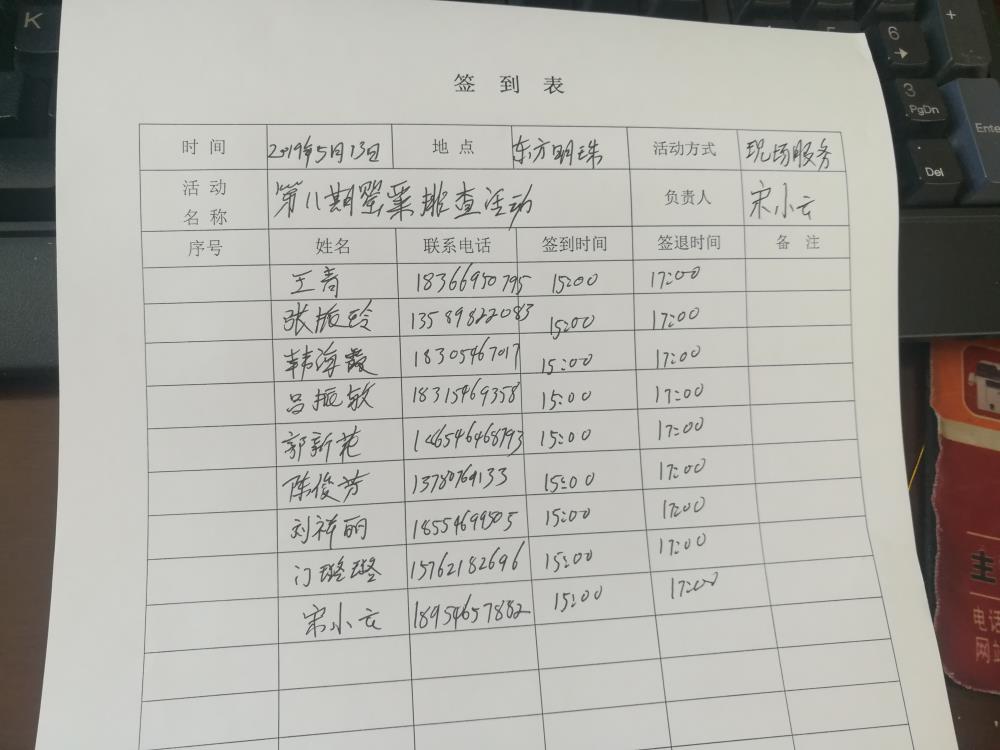 签 到 表
时 间 2019年5月13日 地 点 东方明珠 活动方式 现场服务
活 动 名 称 第八期罂粟排查活动 负责人 宋小云
序号 姓名 联系电话 签到时间 签退时间 备 注
王青 18366950795 15:00 17:00
张振玲 13589822083 15:00 17:00
韩海霞 18305467017 15:00 17:00
吕振敏 18315469358 15:00 17:00
郭新苑 15:00 17:00
陈俊芳 13780769133 15:00 17:00
刘祥丽 15:00 17:00
门璐璐 15762182696 15:00 17:00
宋小云 18954657882 15:00 17:00
K
+
6
3
PgDn
Ente
Del
主
电话
网站